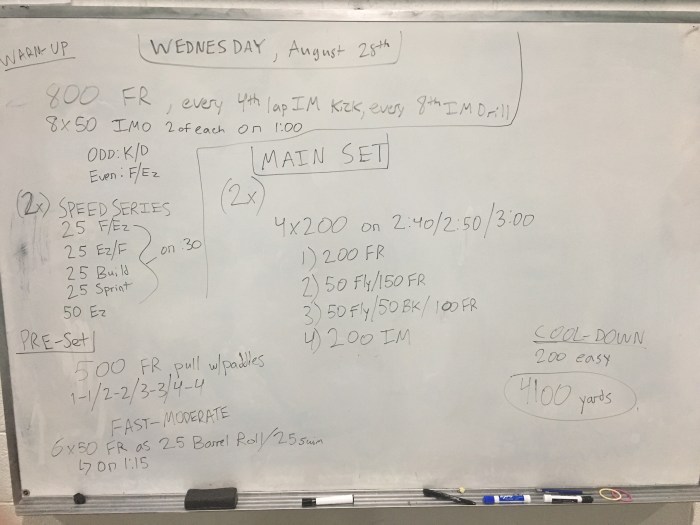 WARM UP
WEDNESDAY, August 28th
800 FR, every 4th lap IM Kick, every 8th IM Drill
8x50 IMO 2 of each on 1:00
ODD: K/D
Even: F/Ez
(2x) SPEED SERIES
25 F/Ez
25 Ez/F
25 Build
25 Sprint
on :30
50 Ez
PRE-Set
500 FR pull w/paddles
1-1/2-2/3-3/4-4
FAST-MODERATE
6x50 FR as 25 Barrel Roll/25 swim
↳ on 1:15
MAIN SET
(2x)
4x200 on 2:40/2:50/3:00
1) 200 FR
2) 50 Fly/150 FR
3) 50 Fly/50 BK/100 FR
4) 200 IM
COOL-DOWN
200 easy
4100 yards